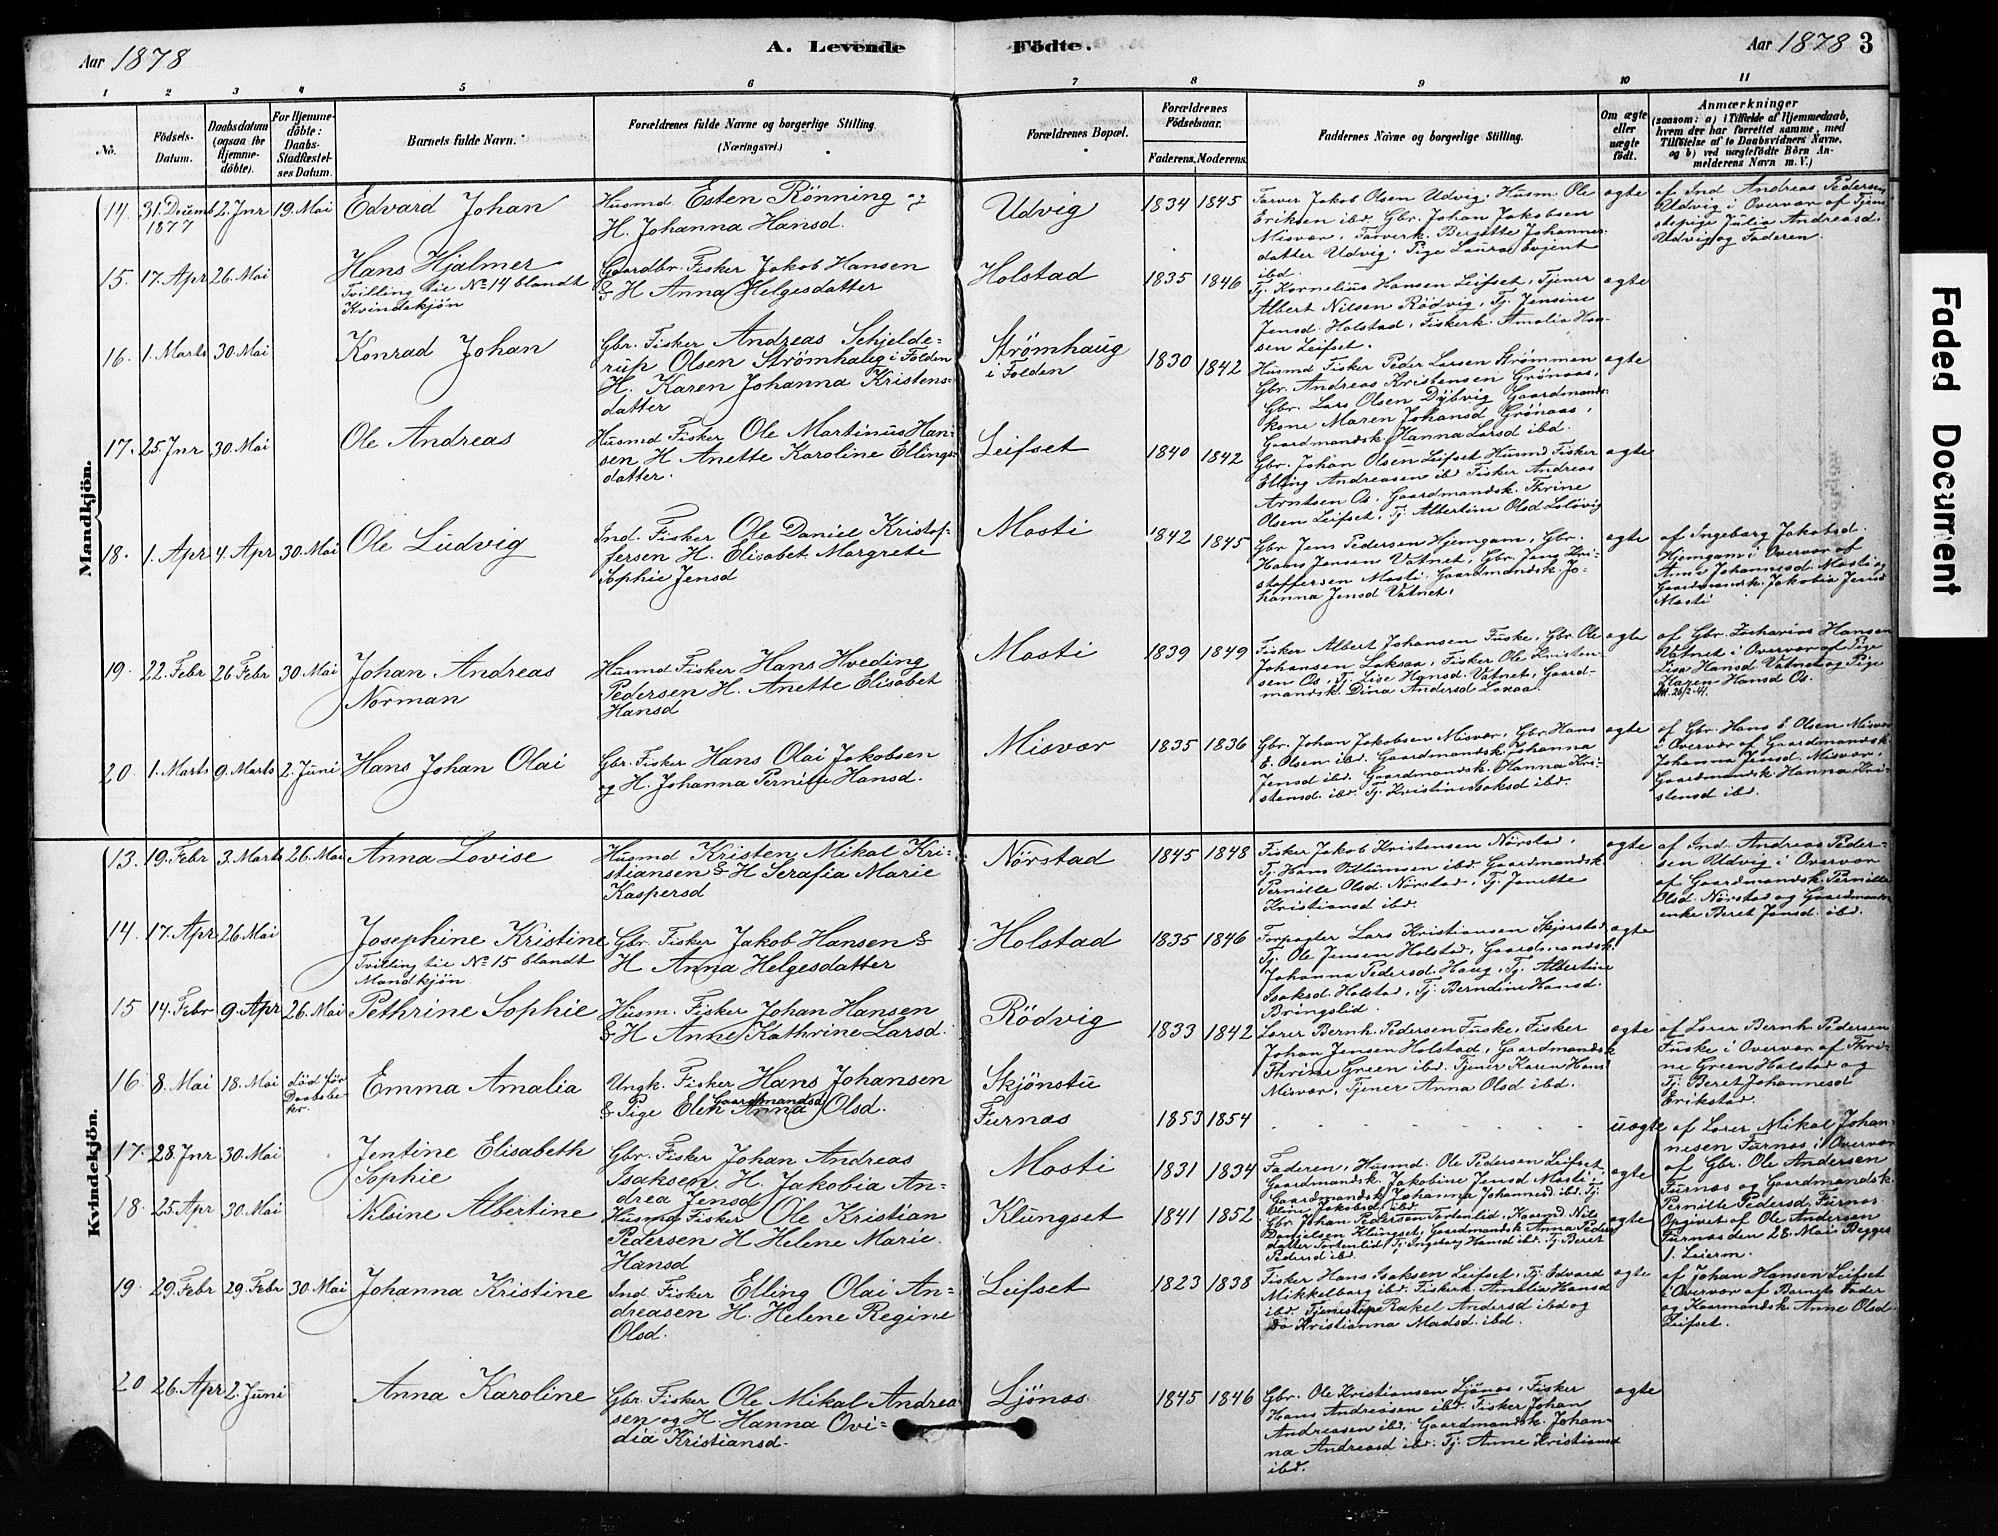 Aar 1878
A. Levende Födte.
Aar 1878 3
1 2 3 4 5 6 7 8 9 10 11
No.
Födsels-
Datum.
Daabsdatum
(ogsaa for
Hjemme-
döbte).
For Hjemme-
döbte:
Daabs-
Stadfæstel-
ses Datum.
Barnets fulde Navn.
Forældrenes fulde Navne og borgerlige Stilling.
(Næringsvei.)
Forældrenes Bopæl.
Forældrenes
Födselsaar.
Faderens. Moderens.
Faddernes Navne og borgerlige Stilling.
Om ægte
eller
uægte
født.
Anmærkninger
(saasom: a) i Tilfælde af Hjemmedaab,
hvem der har forrettet samme, med
Tilföielse af to Daabsvidners Navne,
og b) ved uægtefödte Börn An-
melderens Navn m. V.)
Mandkjön.
14. 31. Decemb 1877 2. Jnr 19. Mai
Edvard Johan
Husmd. Esten Rönning og
H. Johanna Hansd.
Udvig
1834 1845
Farver Jakob Olsen Udvig, Husm. Ole
Eriksen ibd. Gbr. Johan Jakobsen
Misvær, Farverk. Bergitte Johannes-
datter Udvig. Pige Laura Evgint
ibd.
ægte
af Ind Andreas Pedersen
Udvig i Overvær af Tjene-
stepige Julia Andreasd.
Udvig og Faderen.
15. 17. Apr 26. Mai
Hans Hjalmer
Tvilling til No 14 blandt
Kvindekjön
Gaardbr. Fisker Jakob Hansen
& H Anna Helgesdatter
Holstad
1835 1846
Tj. Kornelius Hansen Leifset, Tjener
Albert Nilsen Rödvig, Tj. Jensine
Jensd. Holstad, Fiskerk. Amalia Han-
sen Leifset.
ægte
16. 1. Marts 30. Mai
Konrad Johan
Gbr. Fisker Andreas Schjelde-
rup Olsen Strömhaug i Folden
H. Karen Johanna Kristens-
datter
Strømhaug
i Folden
1830 1842
Husmd Fisker Peder Larsen Strømmen
Gbr. Andreas Kristensen Grönaas,
Gbr. Lars Olsen Dybvig Gaardmands-
kone Maren Johansd Grönaas,
Gaardmandsk. Hanna Larsd ibd.
ægte
17. 25 Jnr 30. Mai
Ole Andreas
Husmd Fisker Ole Martinus Han-
sen H Anette Karoline Ellings-
datter.
Leifset
1840 1842
Gbr. Johan Olsen Leifset Husmd Fisker
Elling Andreasen ibd Fisker Andreas
Arntsen Os. Gaardmandsk. Thrine
Olsen Leifset, Tj Albertine Olsd
ægte
18. 1. Apr 4. Apr 30. Mai
Ole Ludvig
Ind. Fisker Ole Daniel Kristof-
fersen H. Elisabet Margrete
Sophie Jensd
Mosti
1842 1845
Gbr Jens Pedersen Hjemgam, Gbr.
Hans Jensen Vatnet, Gbr. Jens Kri-
stoffersen Mosti, Gaardmandsk. Jo-
hanna Jensd Vatnet.
ægte
af Ingebarg Jakobsd.
Hjemgam i Overvær af
Anna Johannesd. Mosti og
Gaardmandsk. Jakobia Jensd
Mosti
19. 22. Febr 26 Febr 30. Mai
Johan Andreas
Norman
Husmd Fisker Hans Hveding
Pedersen H. Anette Elisabet
Hansd
Mosti
1839 1849
Fisker Albert Johansen Fuske, Gbr Ole
Johansen Laksaa, Fisker Ole Kristen-
sen Os, Tj. Lise Hansd. Vatnet, Gaard-
mandsk. Dina Andersd Laxaa.
ægte
af Gbr. Zacharias Hansen
Vatnet i Overvær af Pige
Lisa Hansd Vatnet og Pige
Karen Hansd Os.
20 1. Marts 9. Marts 2. Juni
Hans Johan Olai
Gbr. Fisker Hans Olai Jakobsen
og H. Johanna Pernille Hansd.
Misvær
1835 1836
Gbr. Johan Jakobsen Misvær, Gbr Hans
E. Olsen ibd. Gaardmandsk. Johanna
Jensd ibd. Gaardmandsk. Hanna Kri-
stensd. ibd. Tj. Kristine Isaksd ibd.
ægte
af Gbr. Hans E Olsen Misvær
i Overvær af Gaardmandsk
Johanna Jensd. Misvær,
Gaardmandsk. Hanna Kri-
stensd ibd.
Kvindekjön.
13. 19. Febr 3. Marts 26. Mai
Anna Lovise
Husmd Kristen Mikal Kri-
stiansen & H Serafia Marie
Kaspersd
Nörstad
1845 1848
Fisker Jakob Kristensen Nörstad,
Tj. Hans Villumsen ibd. Gaardmandsk
Pernille Olsd. Nörstad, Tj. Janette
Kristiansd ibd.
ægte
af Ind. Andreas Peder-
sen Udvig i Overvær
af Gaardmandsk. Pernille
Olsd. Nörstad og Gaardmands-
enke Beret Jansd. ibd.
14. 17. Apr 26. Mai
Josephine Kristine
Tvilling til No 15 blandt
Mandkjön
Gbr. Fisker Jakob Hansen &
H Anna Helgesdatter
Holstad
1835 1846
Forpagter Lars Kristiansen Skjerstad
Tj. Ole Jensen Holstad, Gaardmandsk.
Johanna Pedersd. Haug, Tj. Albertine
Isaksd Holstad, Tj. Berndine Hansd.
Bringslid.
ægte
15. 14. Febr 9. Apr 26. Mai
Pethrine Sophie
Husm. Fisker Johan Hansen
& H Anne Kathrine Larsd.
Rödvig
1833 1842
Lærer Bernh. Pedersen Fuske, Fisker
Johan Jensen Holstad, Gaardmandsk
Thrine Green ibd. Tjener Karen Hans
Misvær, Tjener Anna Olsd ibd.
ægte
af Lærer Bernh. Pedersen
Fuske i Overvær af Thri-
ne Green Holstad og
Tj. Beret Johannesd
Erikstad.
16. 8. Mai 18. Mai död för
Daabsbe-
kr.
Emma Amalia
Ungk. Fisker Hans Johansen
Gaardmandsd
& Pige Elen Anna Olsd.
Skjönstu
Furnæs
1853 1854
uægte
af Lærer Mikal Johan-
nesen Furnæs i Overvær
af Gbr. Ole Andersen
Furnæs og Gaardmandsk
Pernille Pedersd. Furnæs
Opgivet af Ole Andersen
Furnæs den 28. Mai Begges
1. Leierm.
17. 28. Jnr 30. Mai
Jentine Elisabeth
Sophie
Gbr. Fisker Johan Andreas
Isaksen H. Jakobia An-
drea Jensd
Mosti
1831 1834
Faderen, Husmd. Ole Pedersen Leifset,
Gaardmandsk. Jakobine Jensd Mosti,
Gaardmandsk Johanna Johannesd. ibd. Tj.
Oline Jakobsd ibd.
ægte
18. 25 Apr 30. Mai
Nilsine Albertine
Husmd Fisker Ole Kristian
Pedersen H Helene Marie
Hansd
Klungset
1841 1852
Gbr. Johan Pedersen Tortenlid, Kaarmd Nils
Danielsen Klungset, Gaardmandsk Anna Peders-
datter Tortenlid, Tj Ingeborg Hansd ibd. Tj Beret
Pedersd ibd.
ægte
19. 29. Febr 29. Febr 30. Mai
Johanna Kristine
Ind. Fisker Elling Olai An-
dreasen H. Helene Regine
Olsd.
Leifset
1823 1838
Fisker Hans Isaksen Leifset, Tj Edvard
Mikkelborg ibd. Fiskerk. Amalia Hansd
ibd. Tjenestepige Rakel Andersd ibd og
do Kristianna Madsd. ibd.
ægte
af Johan Hansen Leifset
i Overvær af Barnets Fader
og Kaarmandsk. Anne Olsd.
Leifset.
20 26. Apr 2. Juni
Anna Karoline
Gbr. Fisker Ole Mikal Andrea-
sen og H. Hanna Ovi-
dia Kristiansd.
Ljönæs
1845 1846
Gbr. Ole Kristiansen Ljönæs, Fisker
Hans Andreasen ibd. Fisker Johan
Andreasen ibd. Gaardmandsk. Johan-
na Andreasd ibd. Tj. Anne Kristiansd
ibd.
ægte
Faded Document